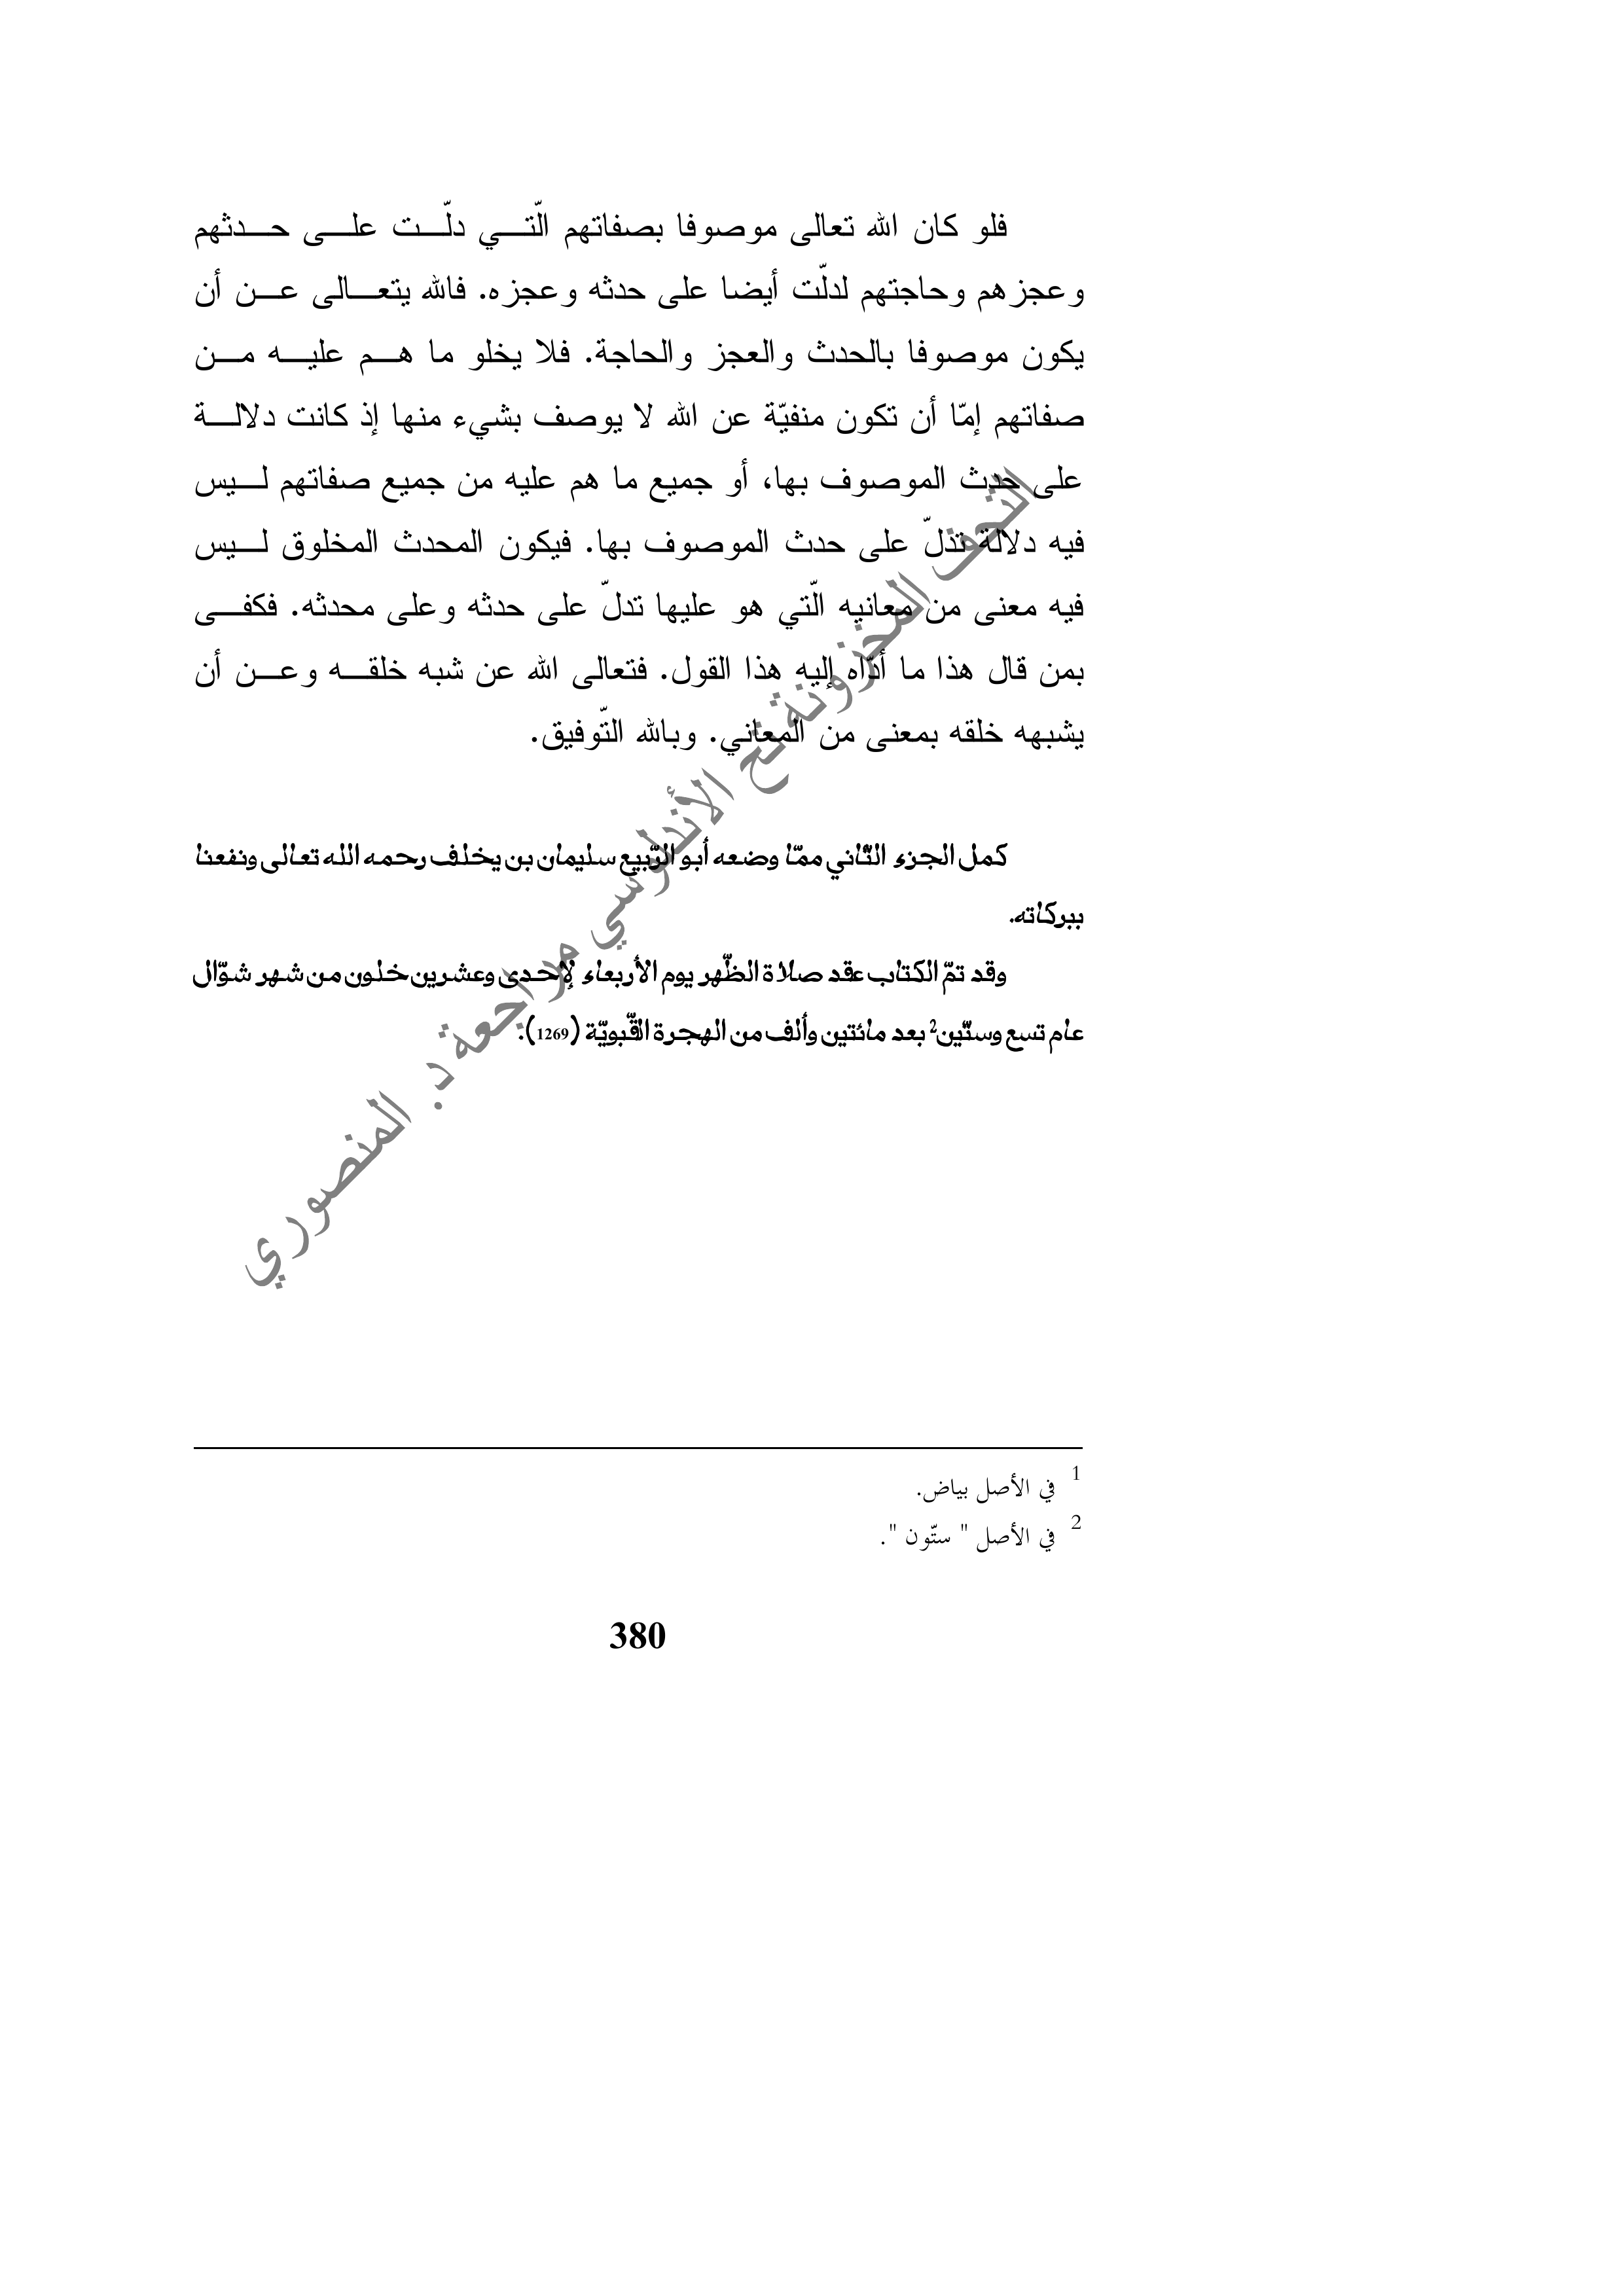 فلو كان الله تعالى موصوفا بصفاتهم الّتي دلّت على حدثهم
وعجزهم وحاجتهم لدلّت أيضا على حدثه وعجزه. فالله يتعالى عن أن
يكون موصوفا بالحدث والعجز والحاجة. فلا يخلو ما هم عليه من
صفاتهم إمّا أن تكون منفيّة عن الله لا يوصف بشيء منها إذ كانت دلالة
على حدث الموصوف بها، أو جميع ما هم عليه من جميع صفاتهم ليس
فيه دلالة تدلّ على حدث الموصوف بها. فيكون المحدث المخلوق ليس
فيه معنى من معانيه الّتي هو عليها تدلّ على حدثه وعلى محدثه. فكفى
بمن قال هذا ما أدّاه إليه هذا القول. فتعالى الله عن شبه خلقه وعن أن
يشبهه خلقه بمعنى من المعاني. وبالله التّوفيق.
كمل الجزء الثّاني ممّا وضعه أبو الرّبيع سليمان بن يخلف رحمه الله تعالى ونفعنا
ببركاته.
وقد تمّ الكتاب عقد صلاة الظّهر يوم الأربعاء لإحدى وعشرين خلون من شهر شوّال
عام تسع وستّين2 بعد مائتين وألف من الهجرة النّبويّة (1269).
التحف المخزونة تح الأندلوسي مراجعة د. المنصوري
1 في الأصل بياض.
2 في الأصل " ستّون ".
380